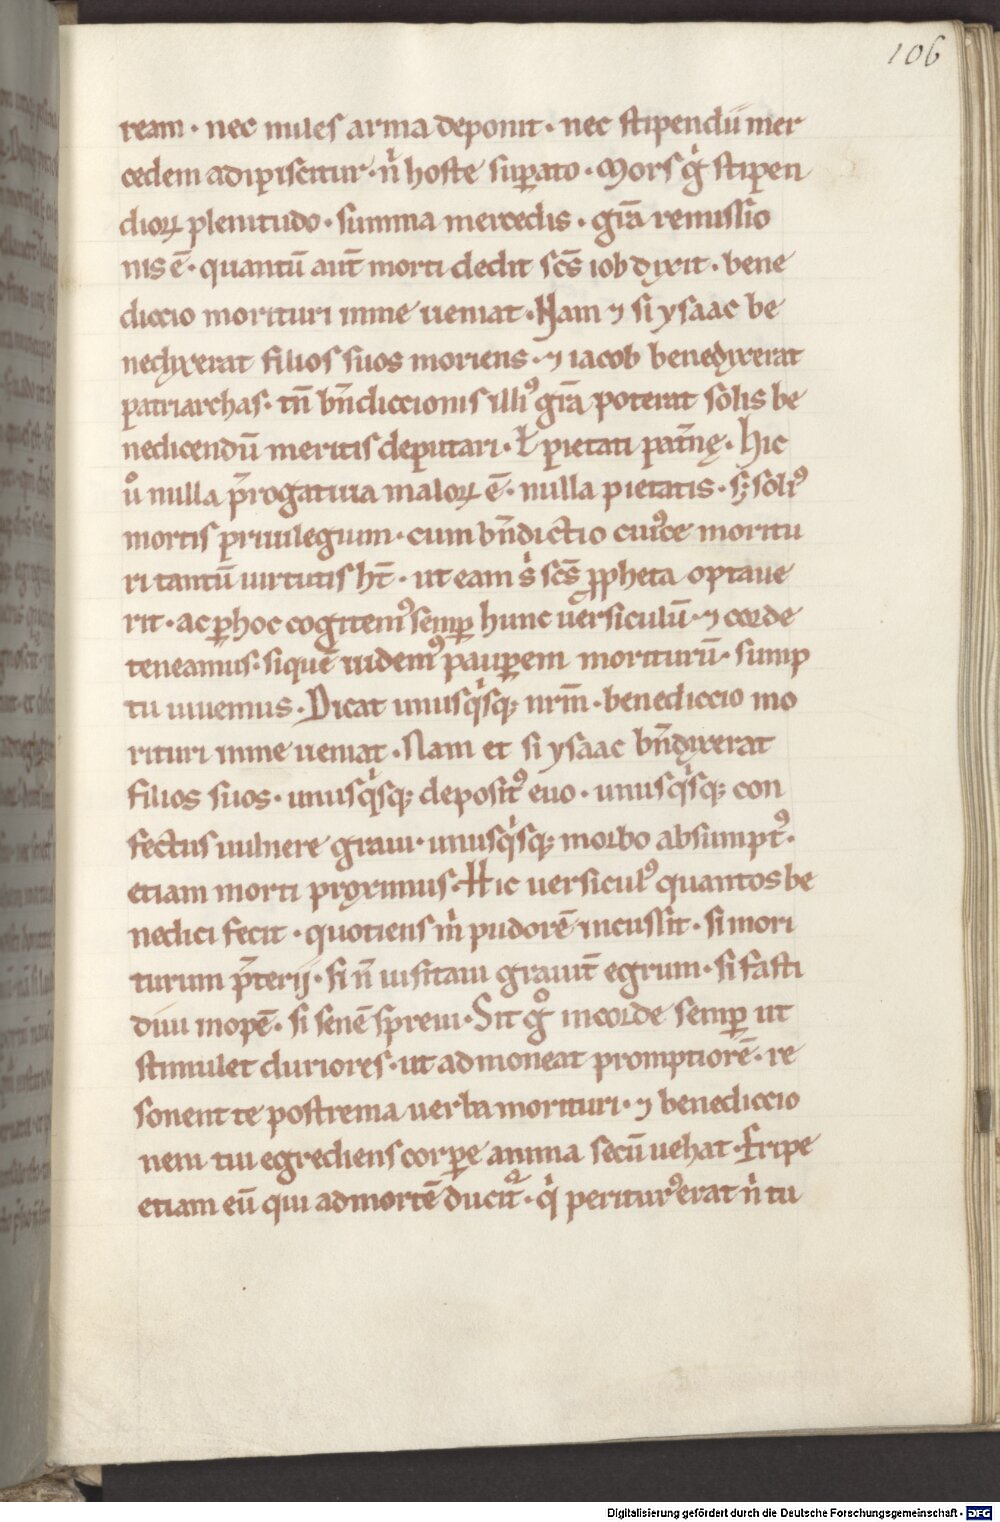 106
team · nec miles arma deponit · nec stipendii mer
cedem adipiscitur · n̄ hoste sup̄ato · Mors gͥ stipen
dioꝝ plenitudo · summa mercedis · gr̄a remissio
nis ē · quantū aut̄ morti dedit sc̄s iob dixit · bene
diccio morituri in me ueniat · Nam ⁊ si ysaac be
nedixerat filios suos moriens · ⁊ iacob benedixerat
patriarchas · tn̄ bn̄diccionis illi᷒ gr̄a poterat solis be
nedicendū meritis deputari · ł pietati pat̄nę · Hic
uͦ nulla p̄rogatiua maioꝝ ē · nulla pietatis · sꝫ soli᷒
mortis priuilegium · cum bn̄dictio cui᷒ce moritu
ri tantū uirtutis ht̄ · ut eam sͥ sc̄s ꝓpheta optaue
rit · ac ꝑ hoc cogitem᷒ semꝑ hunc uersiculū · ⁊ corde
teneamus · si quē uidem᷒ pauꝑem moriturū · sump
tu iuuemus · Dicat unusqͥsqꝫ nrm̄ · benediccio mo
rituri in me ueniat · Nam et si ysaac bn̄dixerat
filios suos · unusqͥsqꝫ deposit᷒ euo · unusqͥsqꝫ con
fectus uulnere graui · unusqͥsqꝫ morbo absumpt᷒ ·
etiam morti proximus · Hic uersicul᷒ quantos be
nedici fecit · quotiens mͥ pudorē incussit · si mori
turum p̄terij · si n̄ uisitaui grauit̄ egrum · si fasti
diui inopē · si senē spreui · Sit gͦ in corde semꝑ ut
stimulet duriores · ut admoneat promptiorē · re
sonent te postrema uerba morituri · ⁊ benediccio
nem tui egrediens corꝑe anima secū uehat · Eripe
etiam eū qui ad mortē ducit᷑ · qͥ peritur᷒ erat nͥ tu
Digitalisierung gefördert durch die Deutsche Forschungsgemeinschaft - DFG